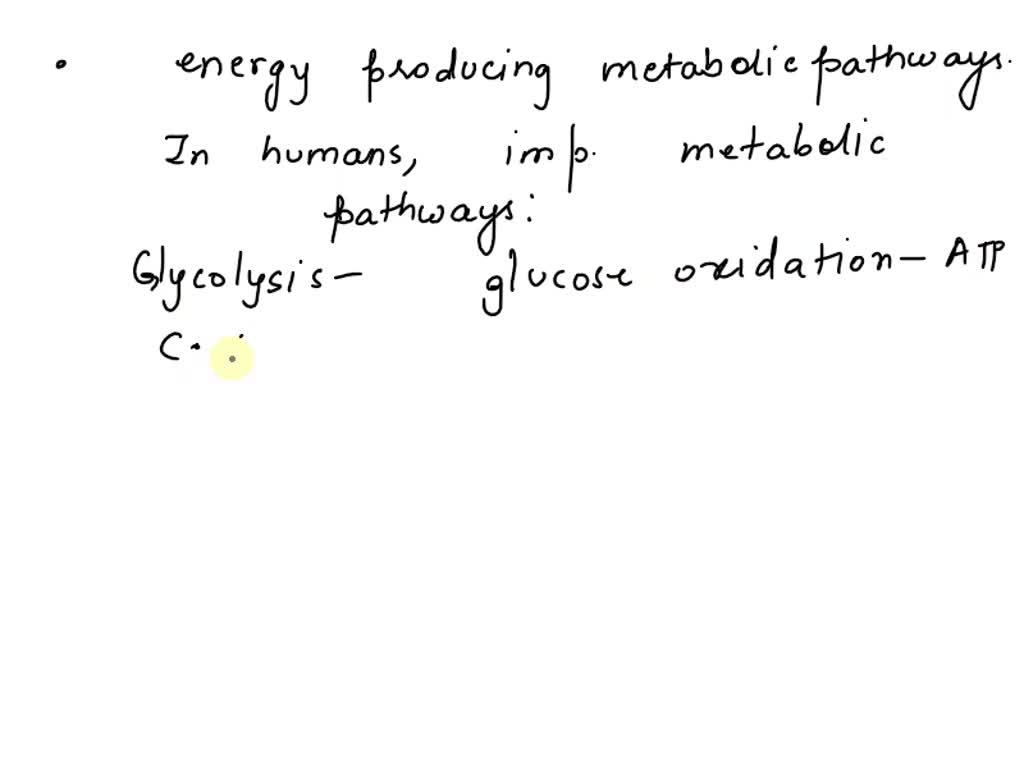 • energy producing metabolic pathways.
In humans, imp. metabolic
pathways:
Glycolysis - glucose oxidation - ATP
C